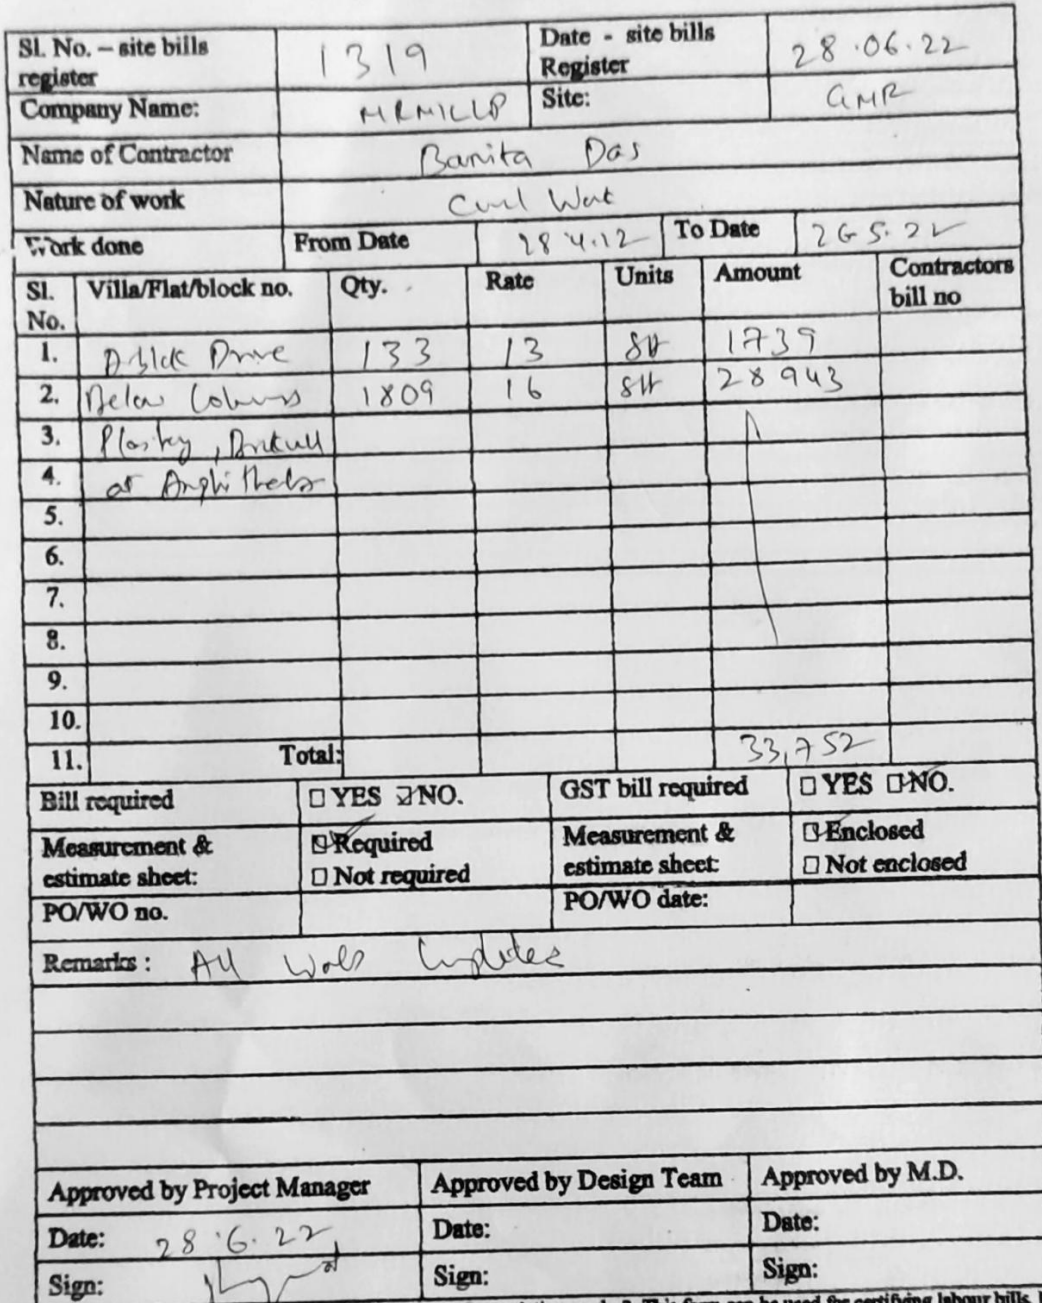 Sl. No. – site bills register 1319 Date - site bills Register 28.06.22
Company Name: MRMILLP Site: GMR
Name of Contractor Banita Das
Nature of work Civil Work
Work done From Date 28.4.12 To Date 26.5.22
Sl. No. Villa/Flat/block no. Qty. Rate Units Amount Contractors bill no
1. Drive 133 13 1739
2. Below Columns 1809 16 28943
3.
4. at
5.
6.
7.
8.
9.
10.
11. Total: 33,752
Bill required □ YES ☑ NO. GST bill required □ YES ☑ NO.
Measurement & estimate sheet: ☑ Required □ Not required Measurement & estimate sheet: ☑ Enclosed □ Not enclosed
PO/WO no. PO/WO date:
Remarks : All
Approved by Project Manager Approved by Design Team Approved by M.D.
Date: 28.6.22 Date: Date:
Sign: Sign: Sign: